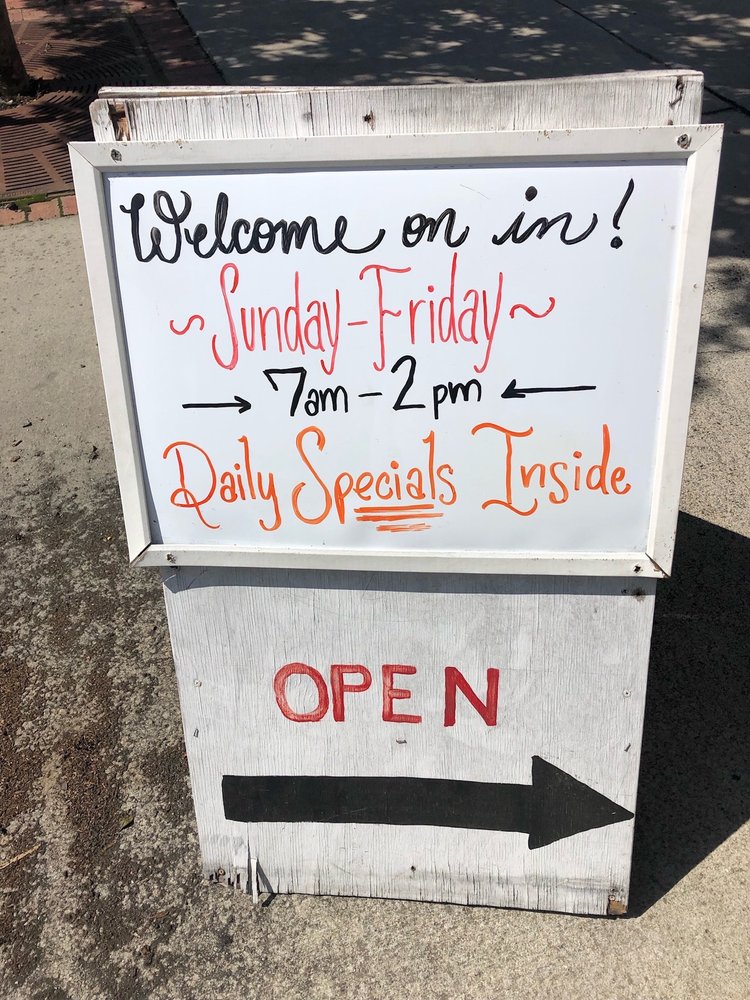 Welcome on in!
~Sunday-Friday~
→ 7am-2pm ←
Daily Specials Inside
OPEN